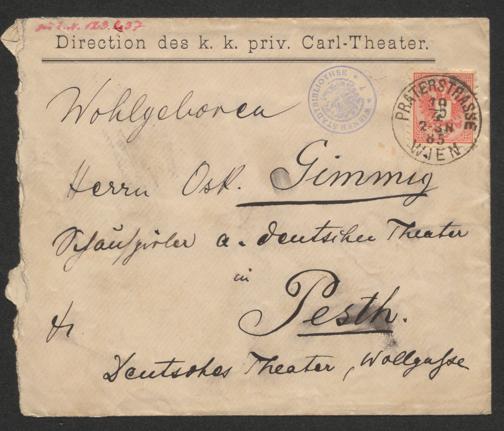 zu I. N. 123.637
Direction des k. k. priv. Carl-Theater.
WIENER STADTBIBLIOTHEK
PRATERSTRASSE
19
5
2-3N
83
WIEN
Wohlgeboren
Herrn Osk. Gimmig
Schauspieler a. deutschen Theater
in
Pesth.
Deutsches Theater, Wollgasse